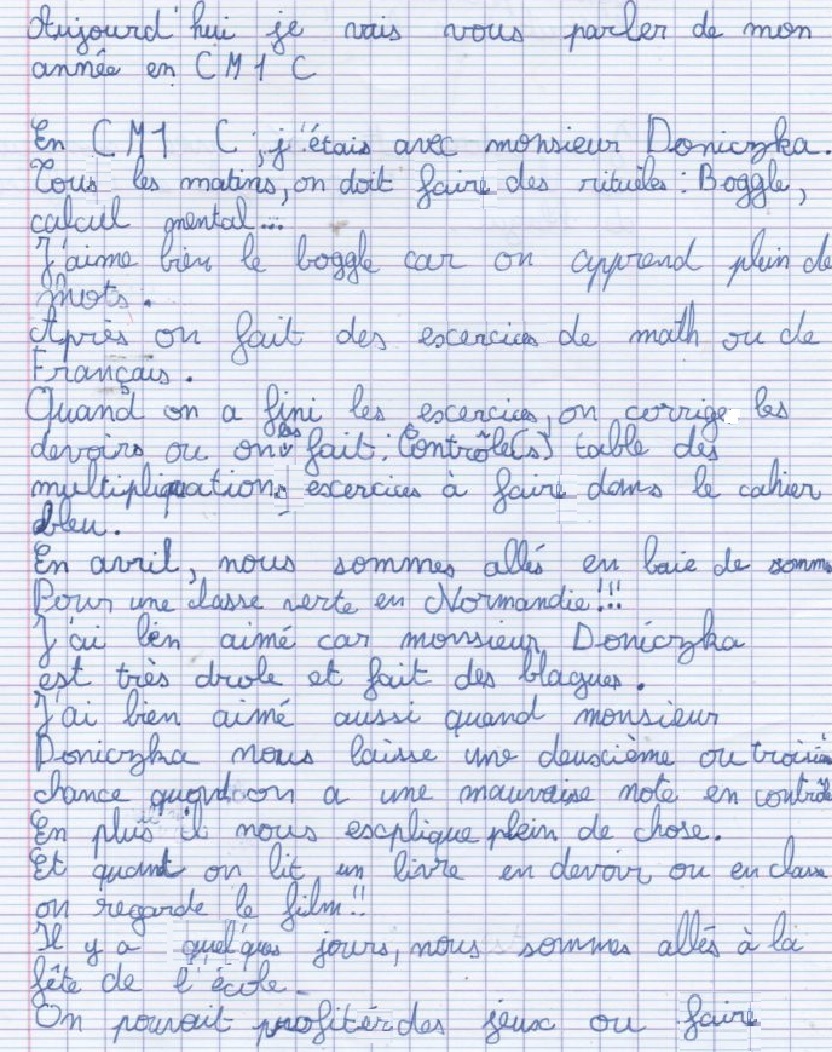 Aujourd'hui je vais vous parler de mon
année en CM1 C
En CM1 C, j'étais avec monsieur Doniczka.
Tous les matins, on doit faire des rituèles : Boggle,
calcul mental...
J'aime bien le boggle car on apprend plein de
mots.
Après on fait des excercices de math ou de
Français.
Quand on a fini les excercices, on corrige les
devoirs ou on les fait : Contrôle(s) table des
multipliquations excercices à faire dans le cahier
bleu.
En avril, nous sommes allés en baie de somme
Pour une classe verte en Normandie !!!
J'ai bien aimé car monsieur Doniczka
est très drole et fait des blagues.
J'ai bien aimé aussi quand monsieur
Doniczka nous laisse une deuxcième ou troisième
chance quand on a une mauvaise note en contrôle
En plus il nous explique plein de chose.
Et quant on lit un livre en devoir ou en classe
on regarde le film !!
Il y a quelques jours, nous sommes allés à la
fête de l'école.
On pouvait profiter des jeux ou faire